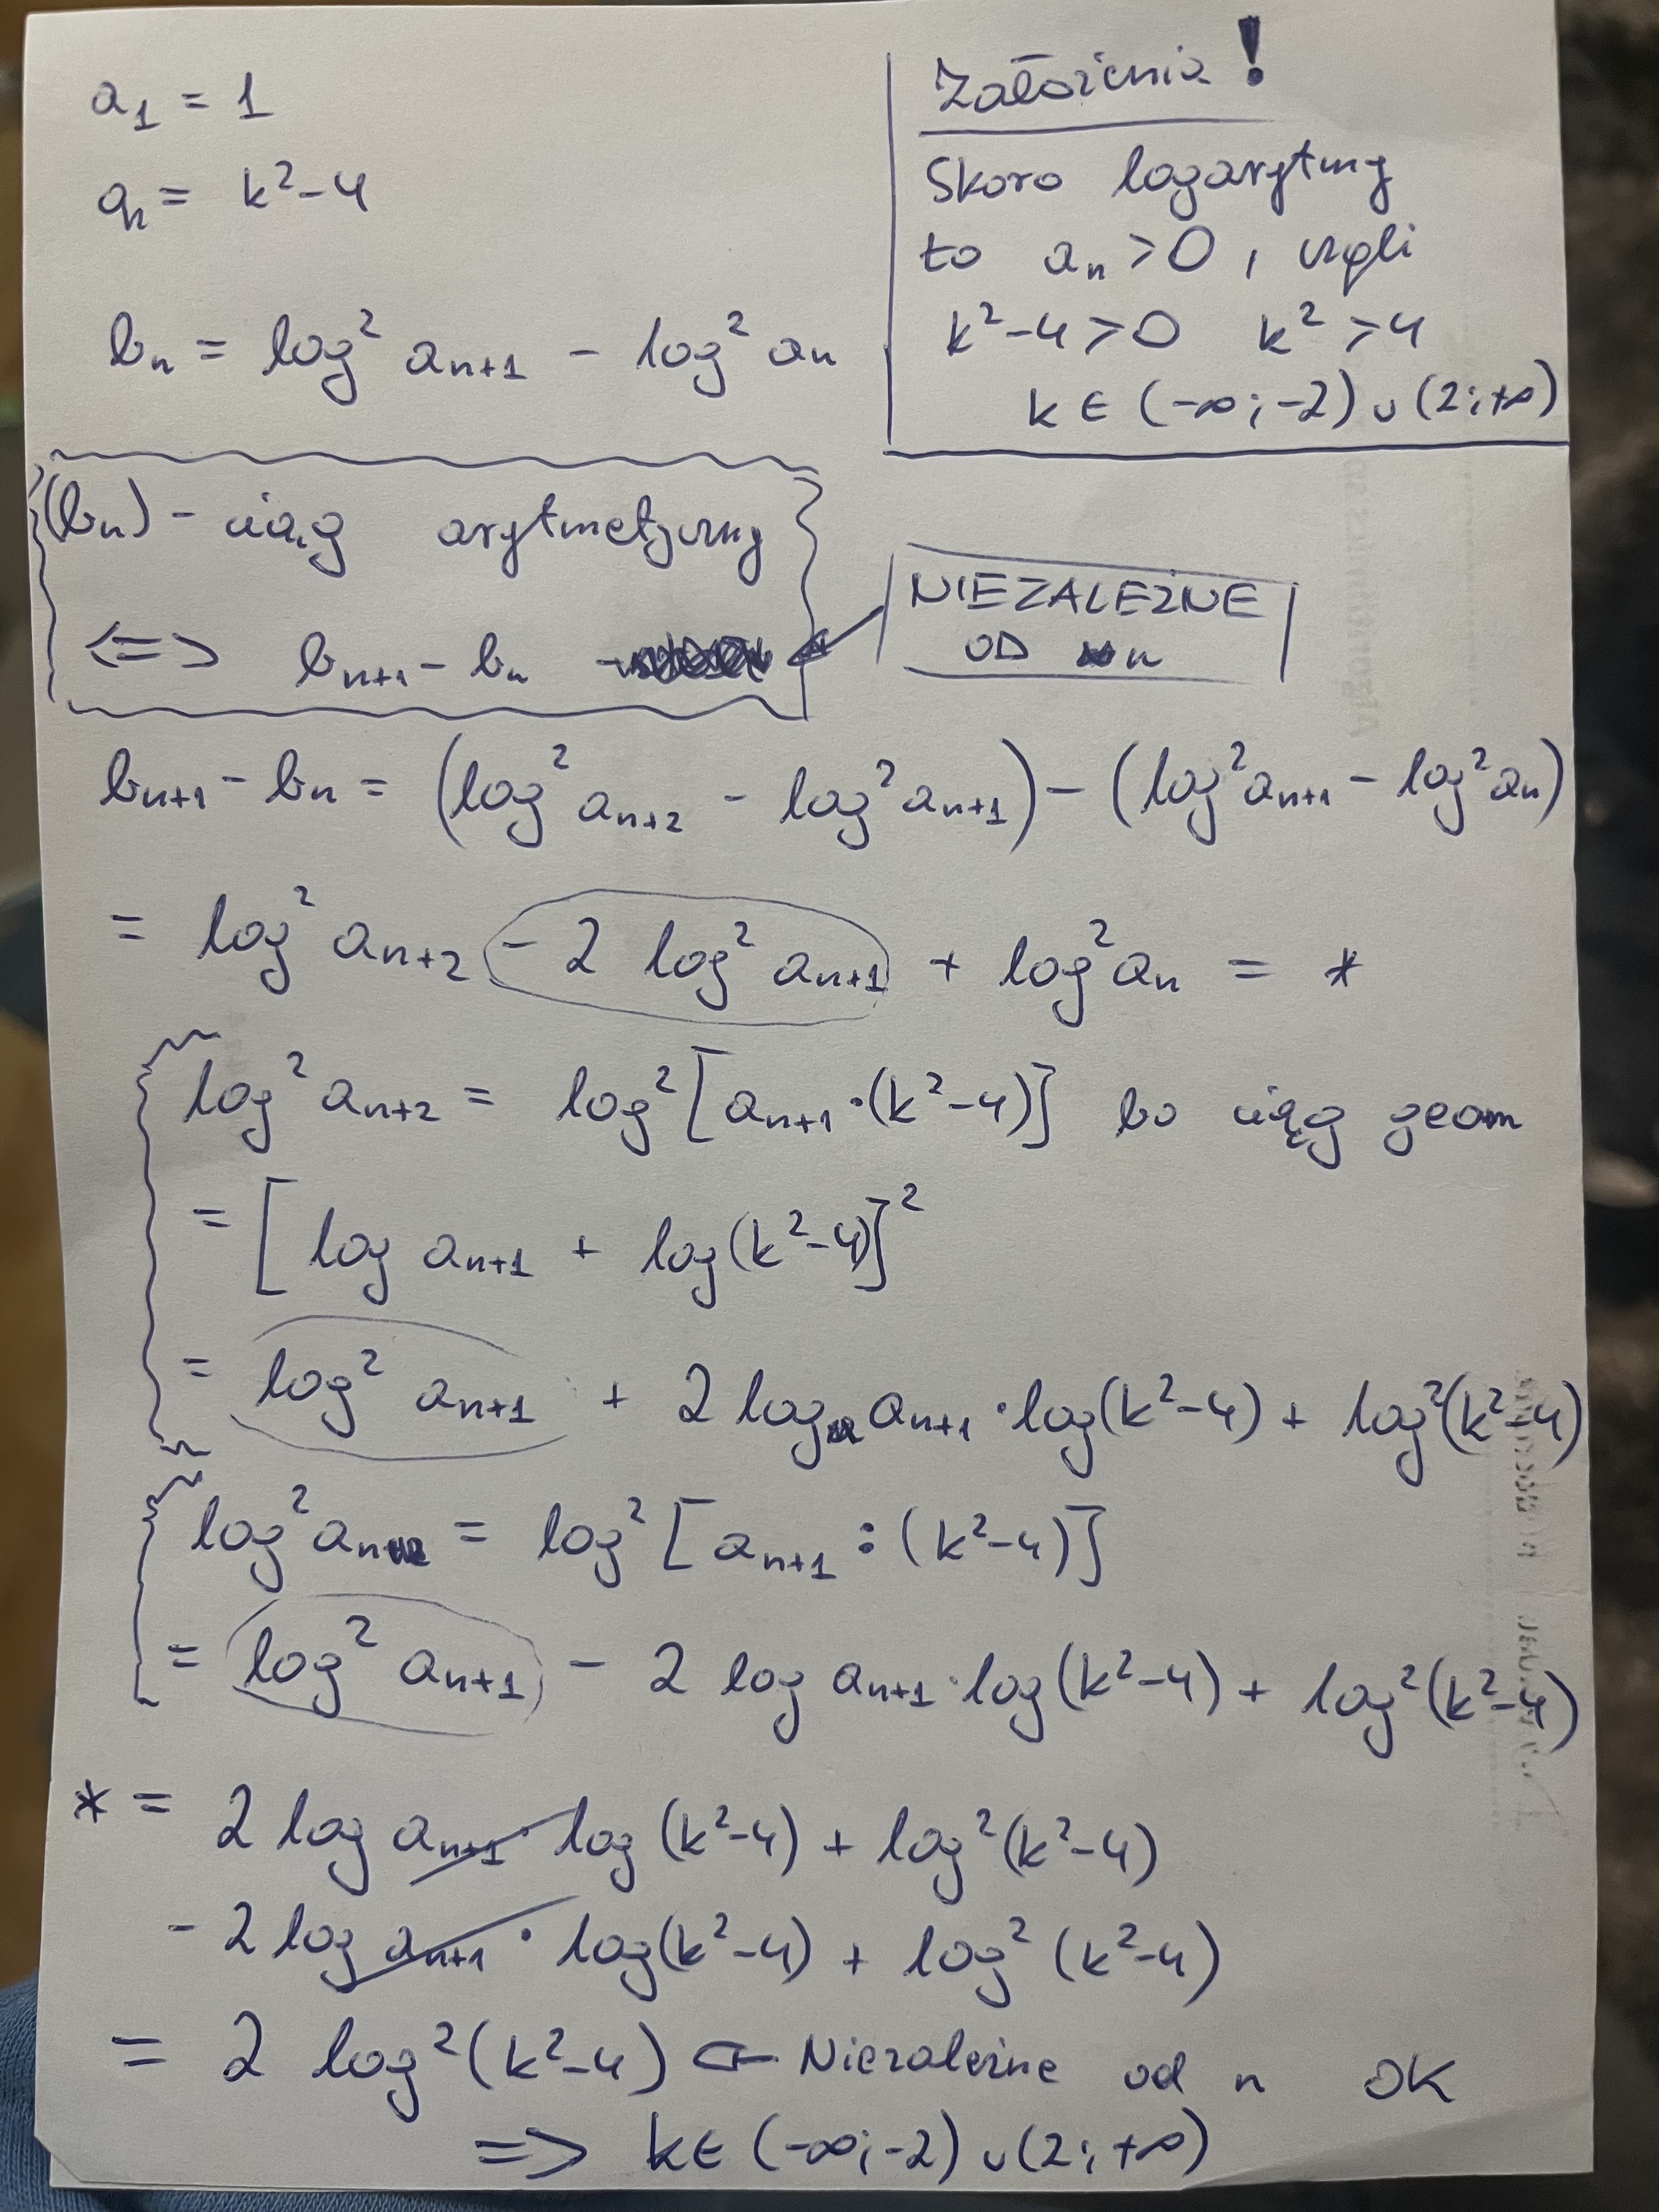 a₁ = 1
a₂ = k²-4
bₙ = log² aₙ₊₁ - log² aₙ
Założenia!
Skoro logarytmy
to aₙ > 0, czyli
k²-4 > 0 k² > 4
k ∈ (-∞; -2) ∪ (2; +∞)
(bₙ) - ciąg arytmetyczny
<=> bₙ₊₁ - bₙ
NIEZALEŻNE
OD n
bₙ₊₁ - bₙ = (log² aₙ₊₂ - log² aₙ₊₁) - (log² aₙ₊₁ - log² aₙ)
= log² aₙ₊₂ - 2 log² aₙ₊₁ + log² aₙ = *
log² aₙ₊₂ = log² [aₙ₊₁ · (k²-4)] bo ciąg geom
= [log aₙ₊₁ + log(k²-4)]²
= log² aₙ₊₁ + 2 log aₙ₊₁ · log(k²-4) + log²(k²-4)
log² aₙ = log² [aₙ₊₁ : (k²-4)]
= log² aₙ₊₁ - 2 log aₙ₊₁ · log(k²-4) + log²(k²-4)
* = 2 log aₙ₊₁ · log(k²-4) + log²(k²-4)
- 2 log aₙ₊₁ · log(k²-4) + log²(k²-4)
= 2 log²(k²-4) ⊂- Niezależne od n OK
=> k ∈ (-∞; -2) ∪ (2; +∞)